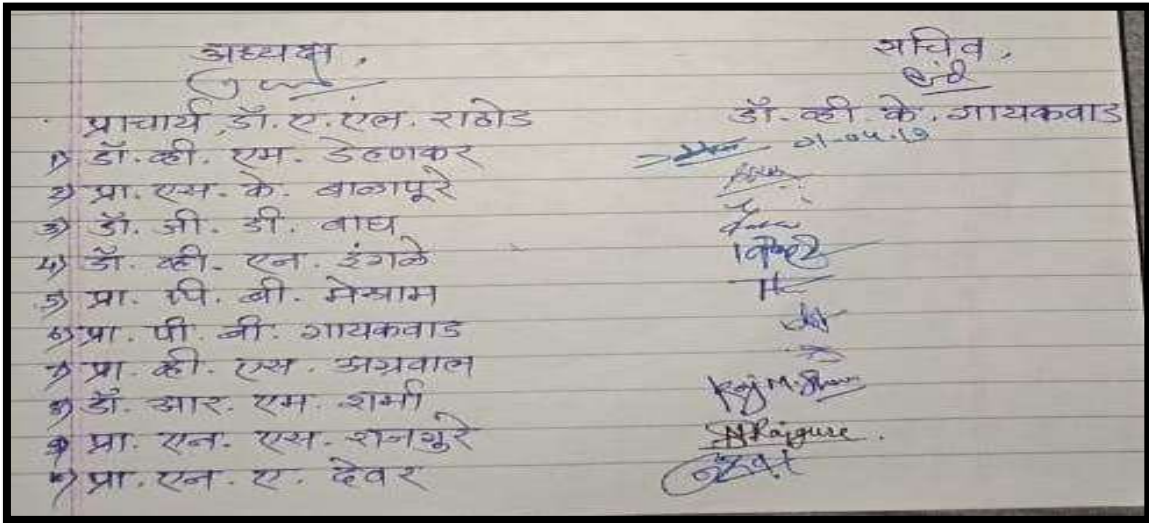 अध्यक्ष, सचिव,
प्राचार्य डॉ. ए. एल. राठोड डॉ. व्ही. के. गायकवाड
१) डॉ. व्ही. एम. डेहणकर
२) प्रा. एस. के. बाळापूरे
३) डॉ. जी. डी. वाघ
४) डॉ. व्ही. एन. इंगळे
५) प्रा. पी. बी. मेश्राम
६) प्रा. पी. बी. गायकवाड
७) प्रा. व्ही. एस. अग्रवाल
८) डॉ. आर. एम. शर्मा
९) प्रा. एन. एस. राजगूरे NRajgure.
१०) प्रा. एन. ए. देवर